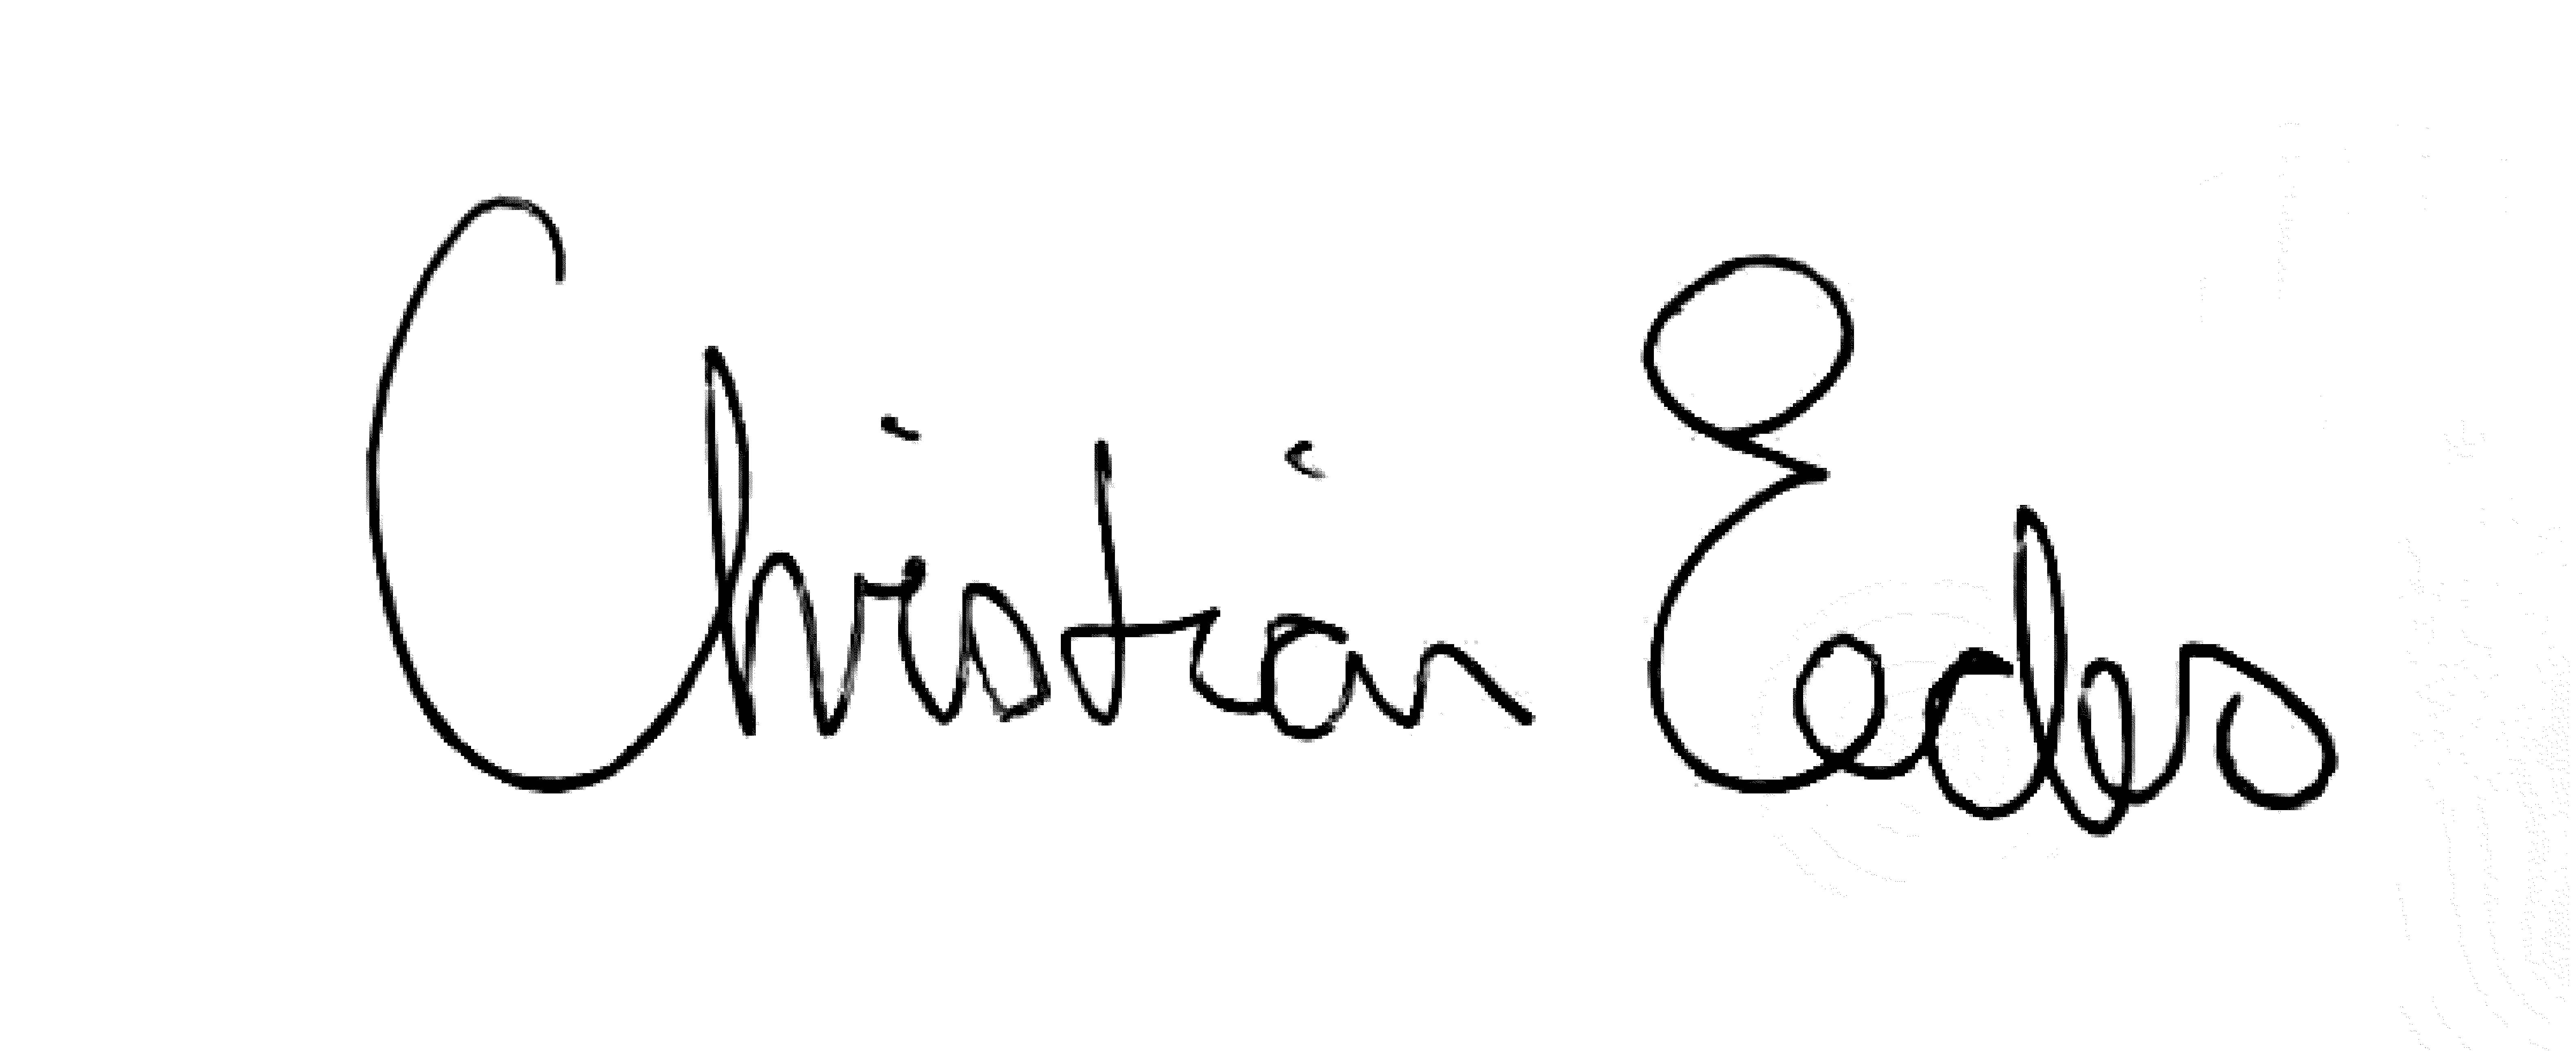 Christian Eedes